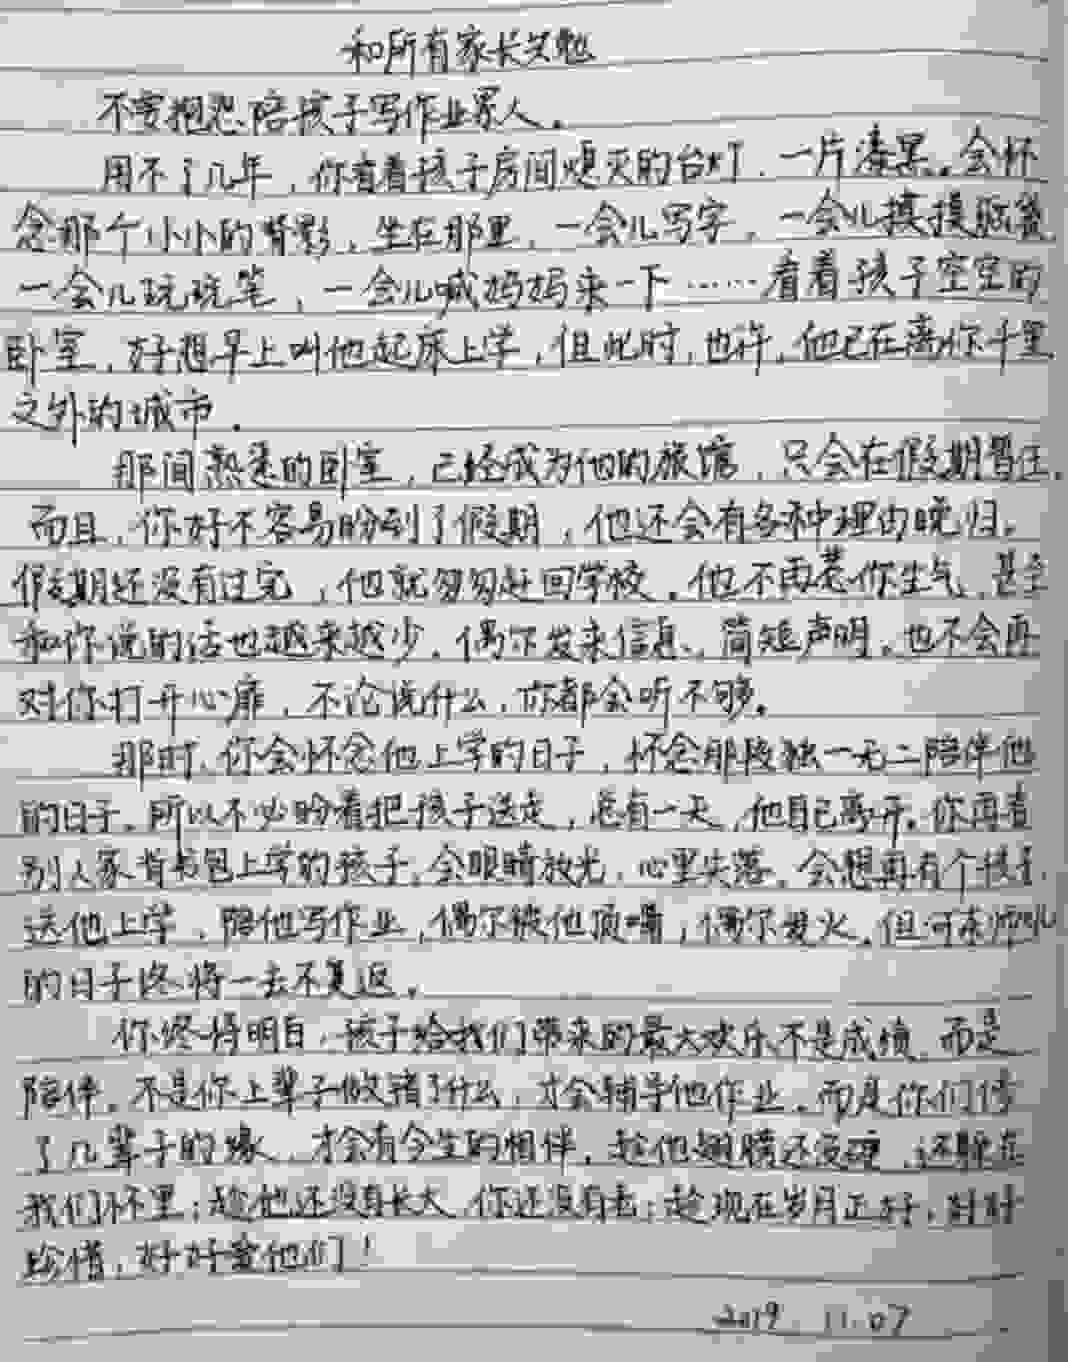 和所有家长共勉
不要抱怨陪孩子写作业累人。
用不了几年，你看着孩子房间熄灭的台灯，一片漆黑。会怀
念那个小小的背影，坐在那里，一会儿写字，一会儿摸摸脑袋，
一会儿玩玩笔，一会儿喊妈妈来一下……看着孩子空空的
卧室，好想早上叫他起床上学，但此时，也许，他已在离你千里
之外的城市。
那间熟悉的卧室，已经成为他的旅馆，只会在假期暂住。
而且，你好不容易盼到了假期，他还会有各种理由晚归。
假期还没有过完，他就匆匆赶回学校。他不再惹你生气，甚至
和你说的话也越来越少。偶尔发来信息，简短声明。也不会再
对你打开心扉，不论说什么，你都会听不够。
那时，你会怀念他上学的日子，怀念那段独一无二陪伴他
的日子。所以不必盼着把孩子送走，总有一天，他自己离开。你再看
别人家背书包上学的孩子，会眼睛放光，心里失落。会想再有个孩子，
送他上学，陪他写作业，偶尔被他顶嘴，偶尔发火。但河东狮吼
的日子终将一去不复返。
你终将明白，孩子给我们带来的最大欢乐不是成绩，而是
陪伴。不是你上辈子做错了什么，才会辅导他作业。而是你们修
了几辈子的缘，才会有今生的相伴。趁他翅膀还没硬，还躲在
我们怀里；趁他还没有长大，你还没有老；趁现在岁月正好，时时
珍惜，好好爱他们！
2019．11．07